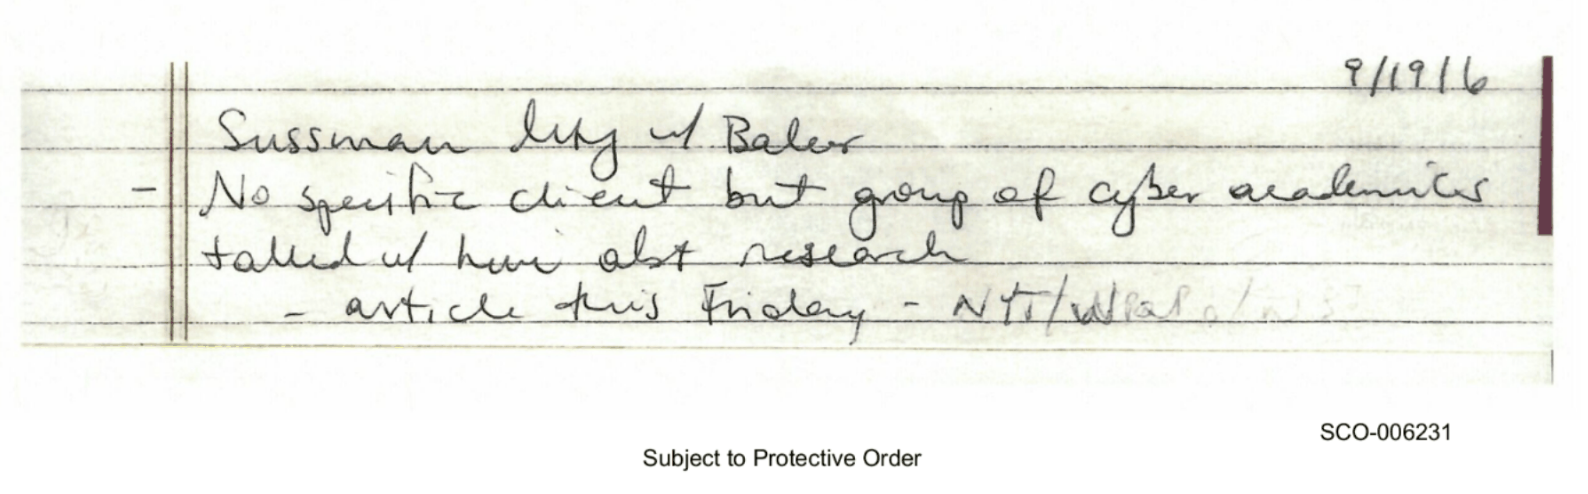 9/19/16
Sussman mtg w/ Baker
- No specific client but group of cyber academics
talked w/ him abt research
- article this Friday - NYT/WaPo/
SCO-006231
Subject to Protective Order